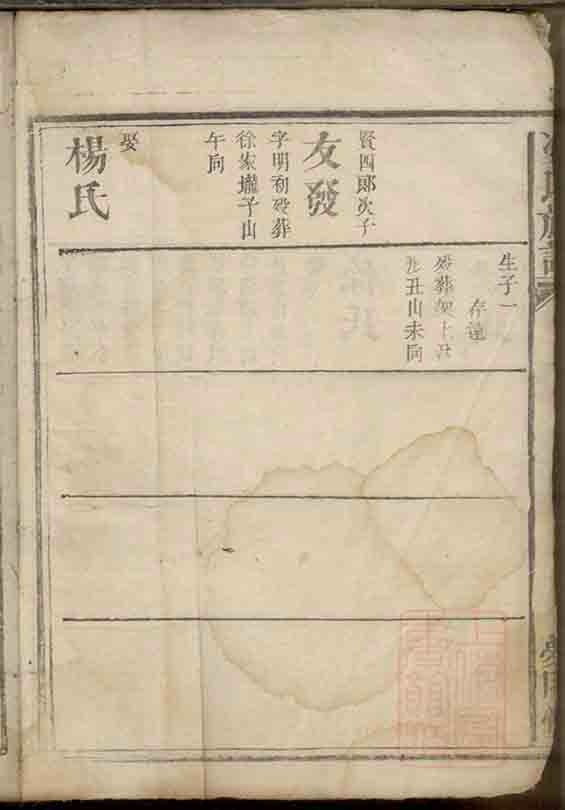 賢四郎次子
友發
字明初殁葬
徐家壠子山
午向
娶
楊氏
生子一
存達
殁葬
丑山未向
氏族譜